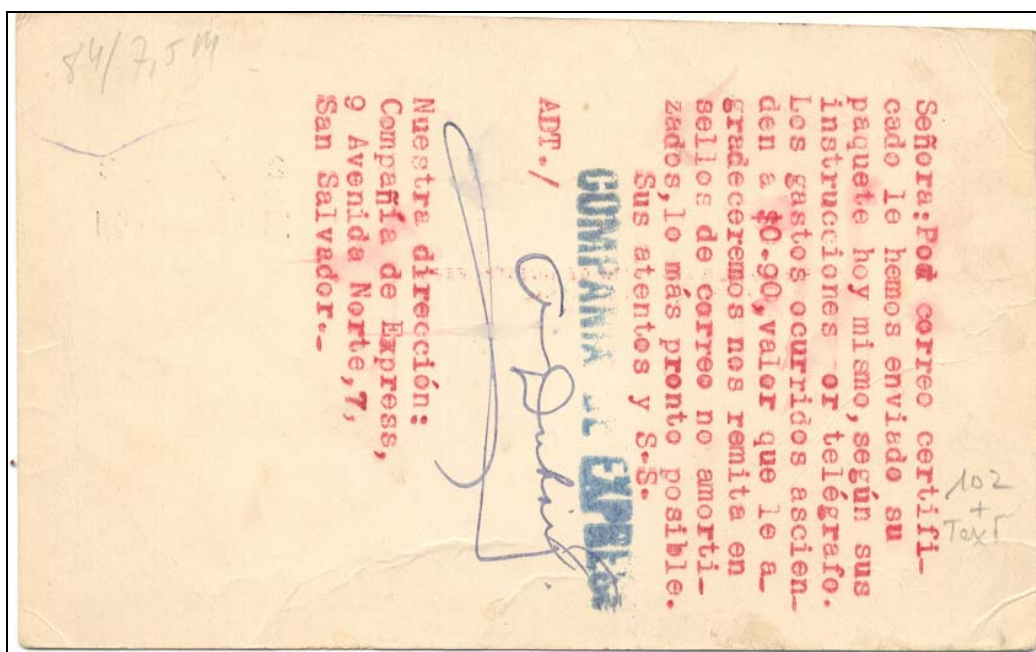 84/7,5 M
Señora:Por correo certifi-
cado le hemos enviado su
paquete hoy mismo,según sus
instrucciones or telégrafo.
Los gastos ocurridos ascien-
den a $0.90,valor que le a-
gradeceremos nos remita en
sellos de correo no amorti-
zados,lo más pronto posible.
Sus atentos y S.S.
COMPAÑIA DE EXPRESS
ADT./
Nuestra dirección:
Compañía de Express,
9 Avenida Norte,7,
San Salvador.-
102
+
Text